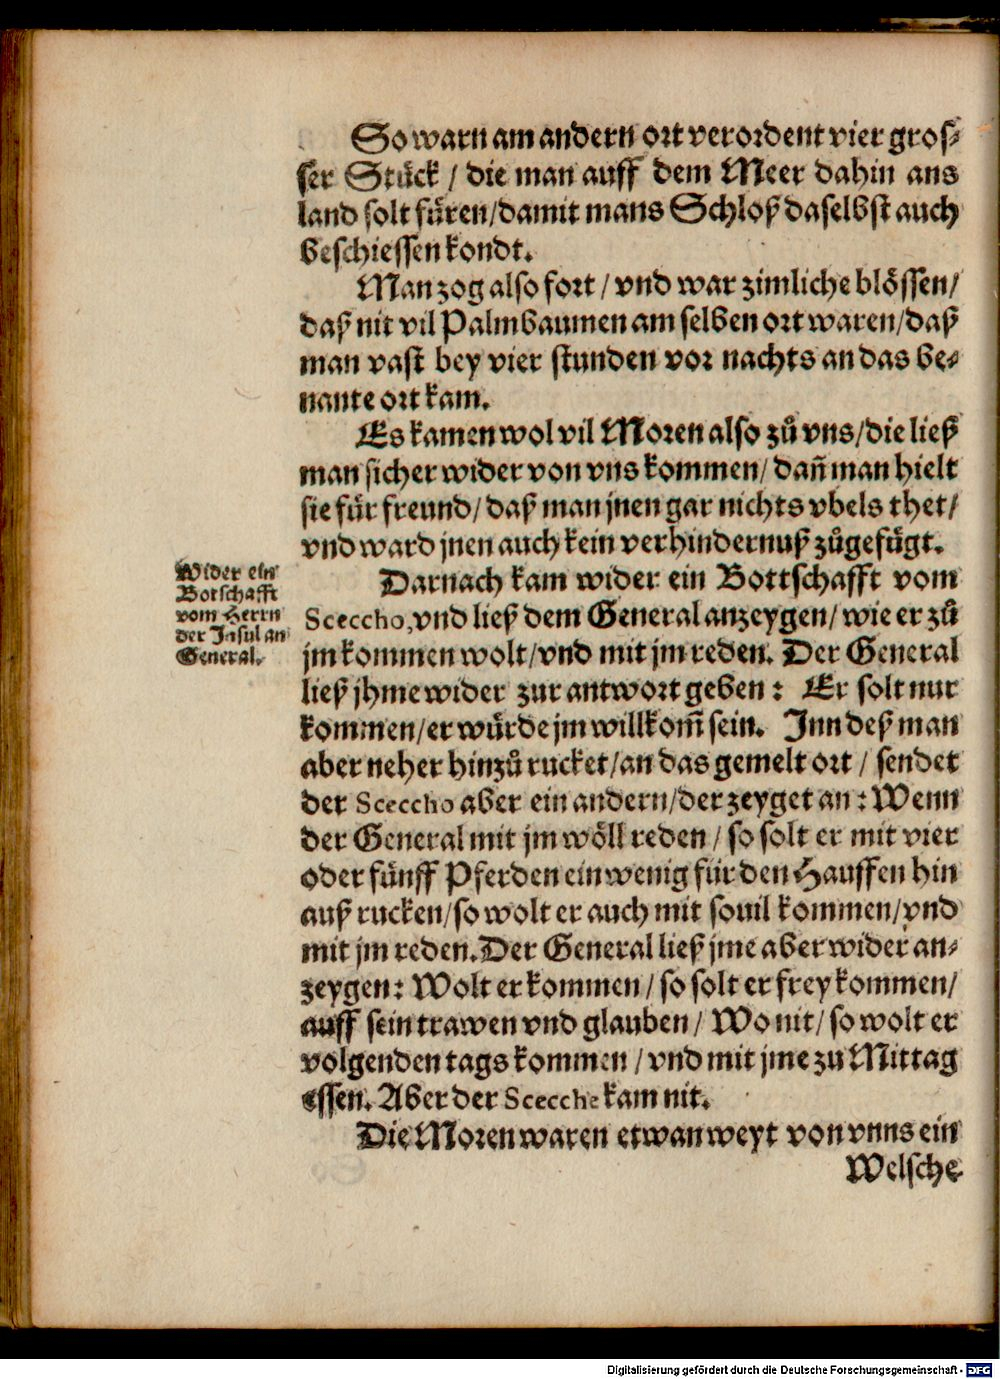 So warn am andern ort verordent vier gros⸗
ser Stuͤck / die man auff dem Meer dahin ans
land solt fuͤren/damit mans Schloß daselbst auch
beschiessen kondt.
Man zog also fort / vnd war zimliche bloͤssen/
daß nit vil Palmbaumen am selben ort waren/daß
man vast bey vier stunden vor nachts an das be⸗
nante ort kam.
Es kamen wol vil Moren also zuͦ vns/die ließ
man sicher wider von vns kommen/ dañ man hielt
sie fuͤr freund/ daß man jnen gar nichts vbels thet/
vnd ward jnen auch kein verhindernuß zuͦgefuͤgt.
Wider ein
Botschafft
vom Herrn
der Insul an
General.
Darnach kam wider ein Bottschafft vom
Sceccho, vnd ließ dem General anzeygen/ wie er zuͦ
jm kommen wolt/vnd mit jm reden. Der General
ließ jhme wider zur antwort geben : Er solt nur
kommen/er wuͤrde jm willkom̃ sein. Inn deß man
aber neher hinzuͦ rucket/an das gemelt ort / sendet
der Sceccho aber ein andern/der zeyget an : Wenn
der General mit jm woͤll reden / so solt er mit vier
oder fuͤnff Pferden ein wenig fuͤr den Hauffen hin
auß rucken/so wolt er auch mit souil kommen/vnd
mit jm reden. Der General ließ jme aber wider an⸗
zeygen : Wolt er kommen / so solt er frey kommen/
auff sein trawen vnd glauben / Wo nit/ so wolt er
volgenden tags kommen / vnd mit jme zu Mittag
essen. Aber der Sceccho kam nit.
Die Moren waren etwan weyt von vnns ein
Welsche
Digitalisierung gefördert durch die Deutsche Forschungsgemeinschaft - DFG